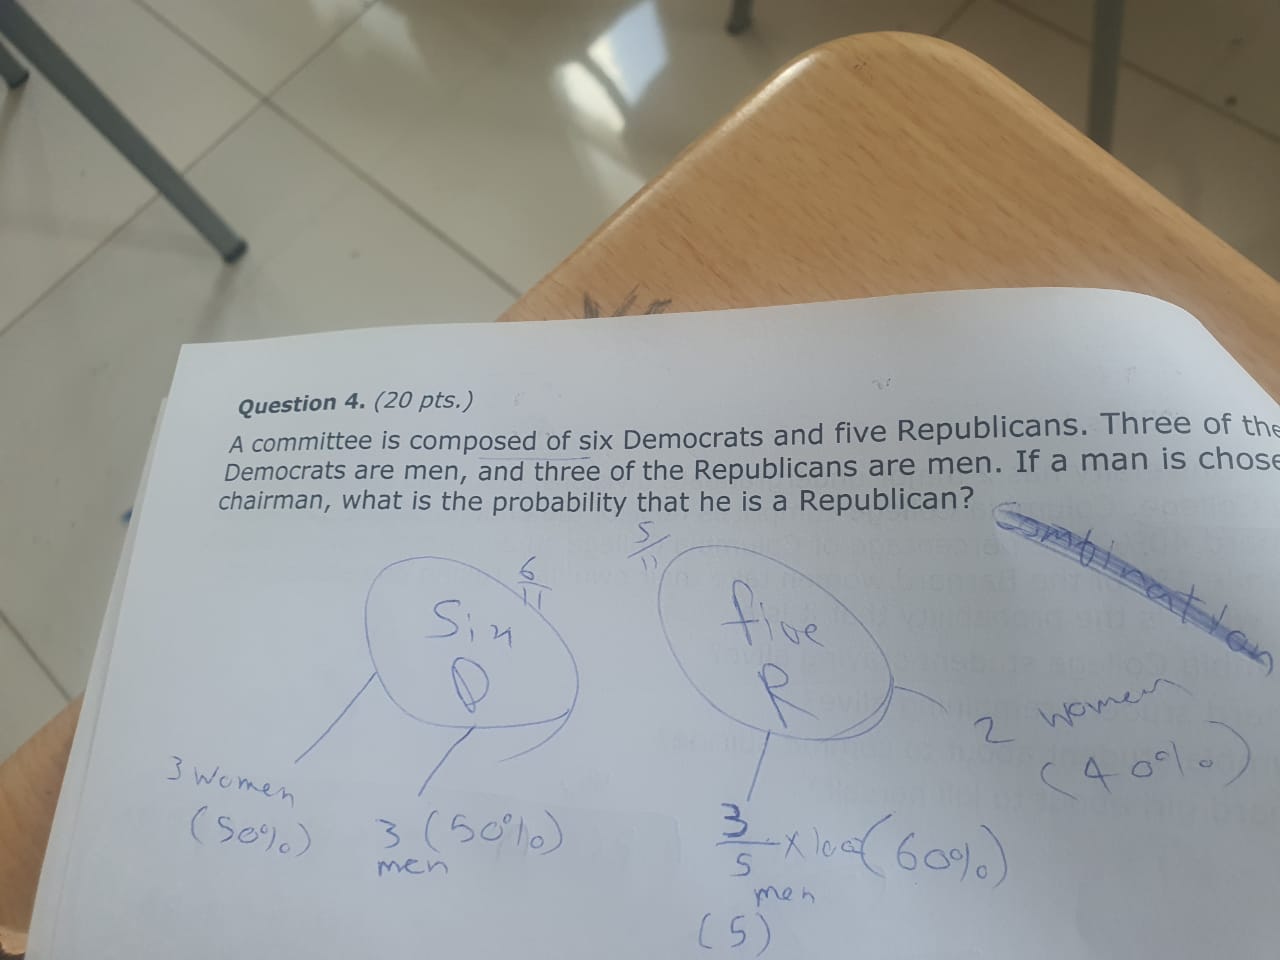 Question 4. (20 pts.)
A committee is composed of six Democrats and five Republicans. Three of the
Democrats are men, and three of the Republicans are men. If a man is chose
chairman, what is the probability that he is a Republican?
Combination
6/11
5/11
Six
D
five
R
3 women
(50%)
3 (50%)
men
2 women
(40%)
3/5 x 100 (60%)
men
(5)